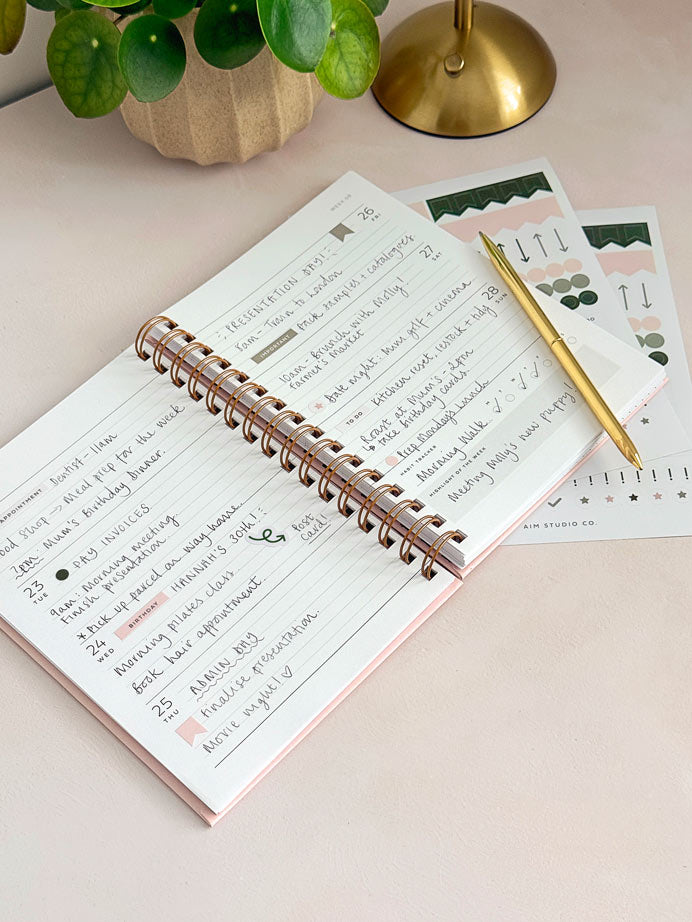 APPOINTMENT Dentist - 11am
ood shop -> Meal prep for the week
7pm: Mum's Birthday dinner.
23 TUE
PAY INVOICES
9am: Morning meeting
Finish presentation.
* Pick up parcel on way home.
24 WED
BIRTHDAY HANNAH'S 30th!
Post
Card!
Morning pilates class.
Book hair appointment.
25 THU
ADMIN DAY
Finalise presentation.
Movie night! ♡
WEEK
26 FRI
PRESENTATION DAY!
8am - Train to London
IMPORTANT Pack samples + catalogues
27 SAT
10am - Brunch with Molly!
Farmer's Market
Date night: Mini golf + cinema
28 SUN
TO DO Kitchen reset, restock + tidy
↳ Roast at Mum's - 2pm
take birthday cards
Prep Mondays lunch
HABIT TRACKER
Morning Walk ✓ ✓ ✓
HIGHLIGHT OF THE WEEK
Meeting Molly's new puppy!
AIM STUDIO CO.